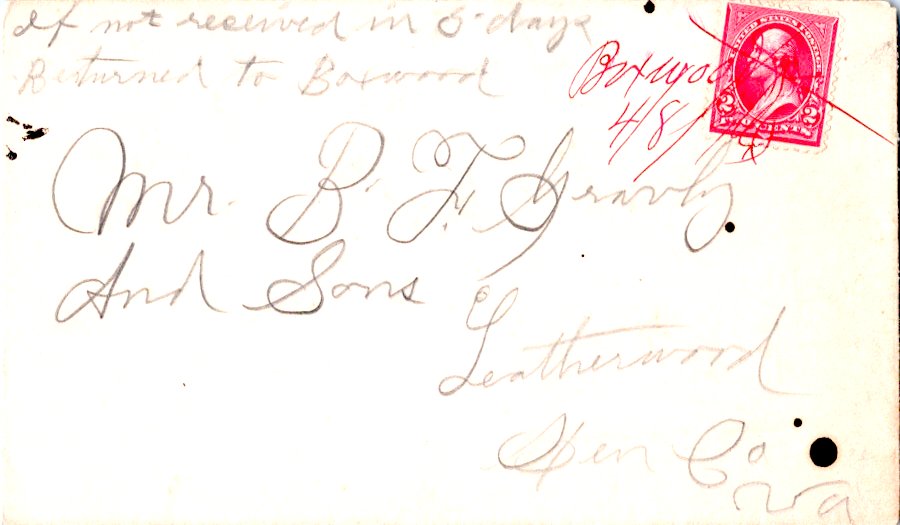 If not received in 5 days
Returned to Boxwood
Boxwood
4/8/
UNITED STATES POSTAGE
2 TWO CENTS 2
Mr. B. F. Gravly
And Sons
Leatherwood
Hen Co
Va